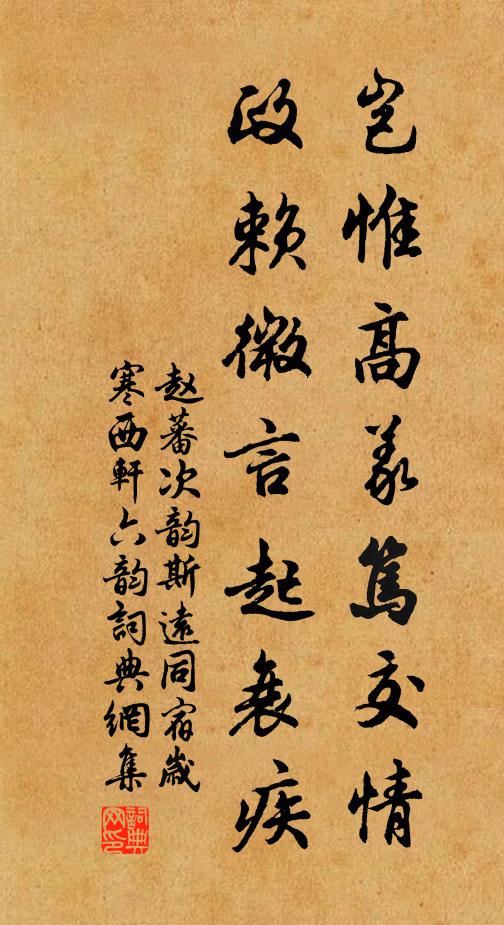 岂惟高义笃交情
政赖微言起衰疾
赵蕃次韵斯远同宿岁
寒西轩六韵词典网集
词典网印